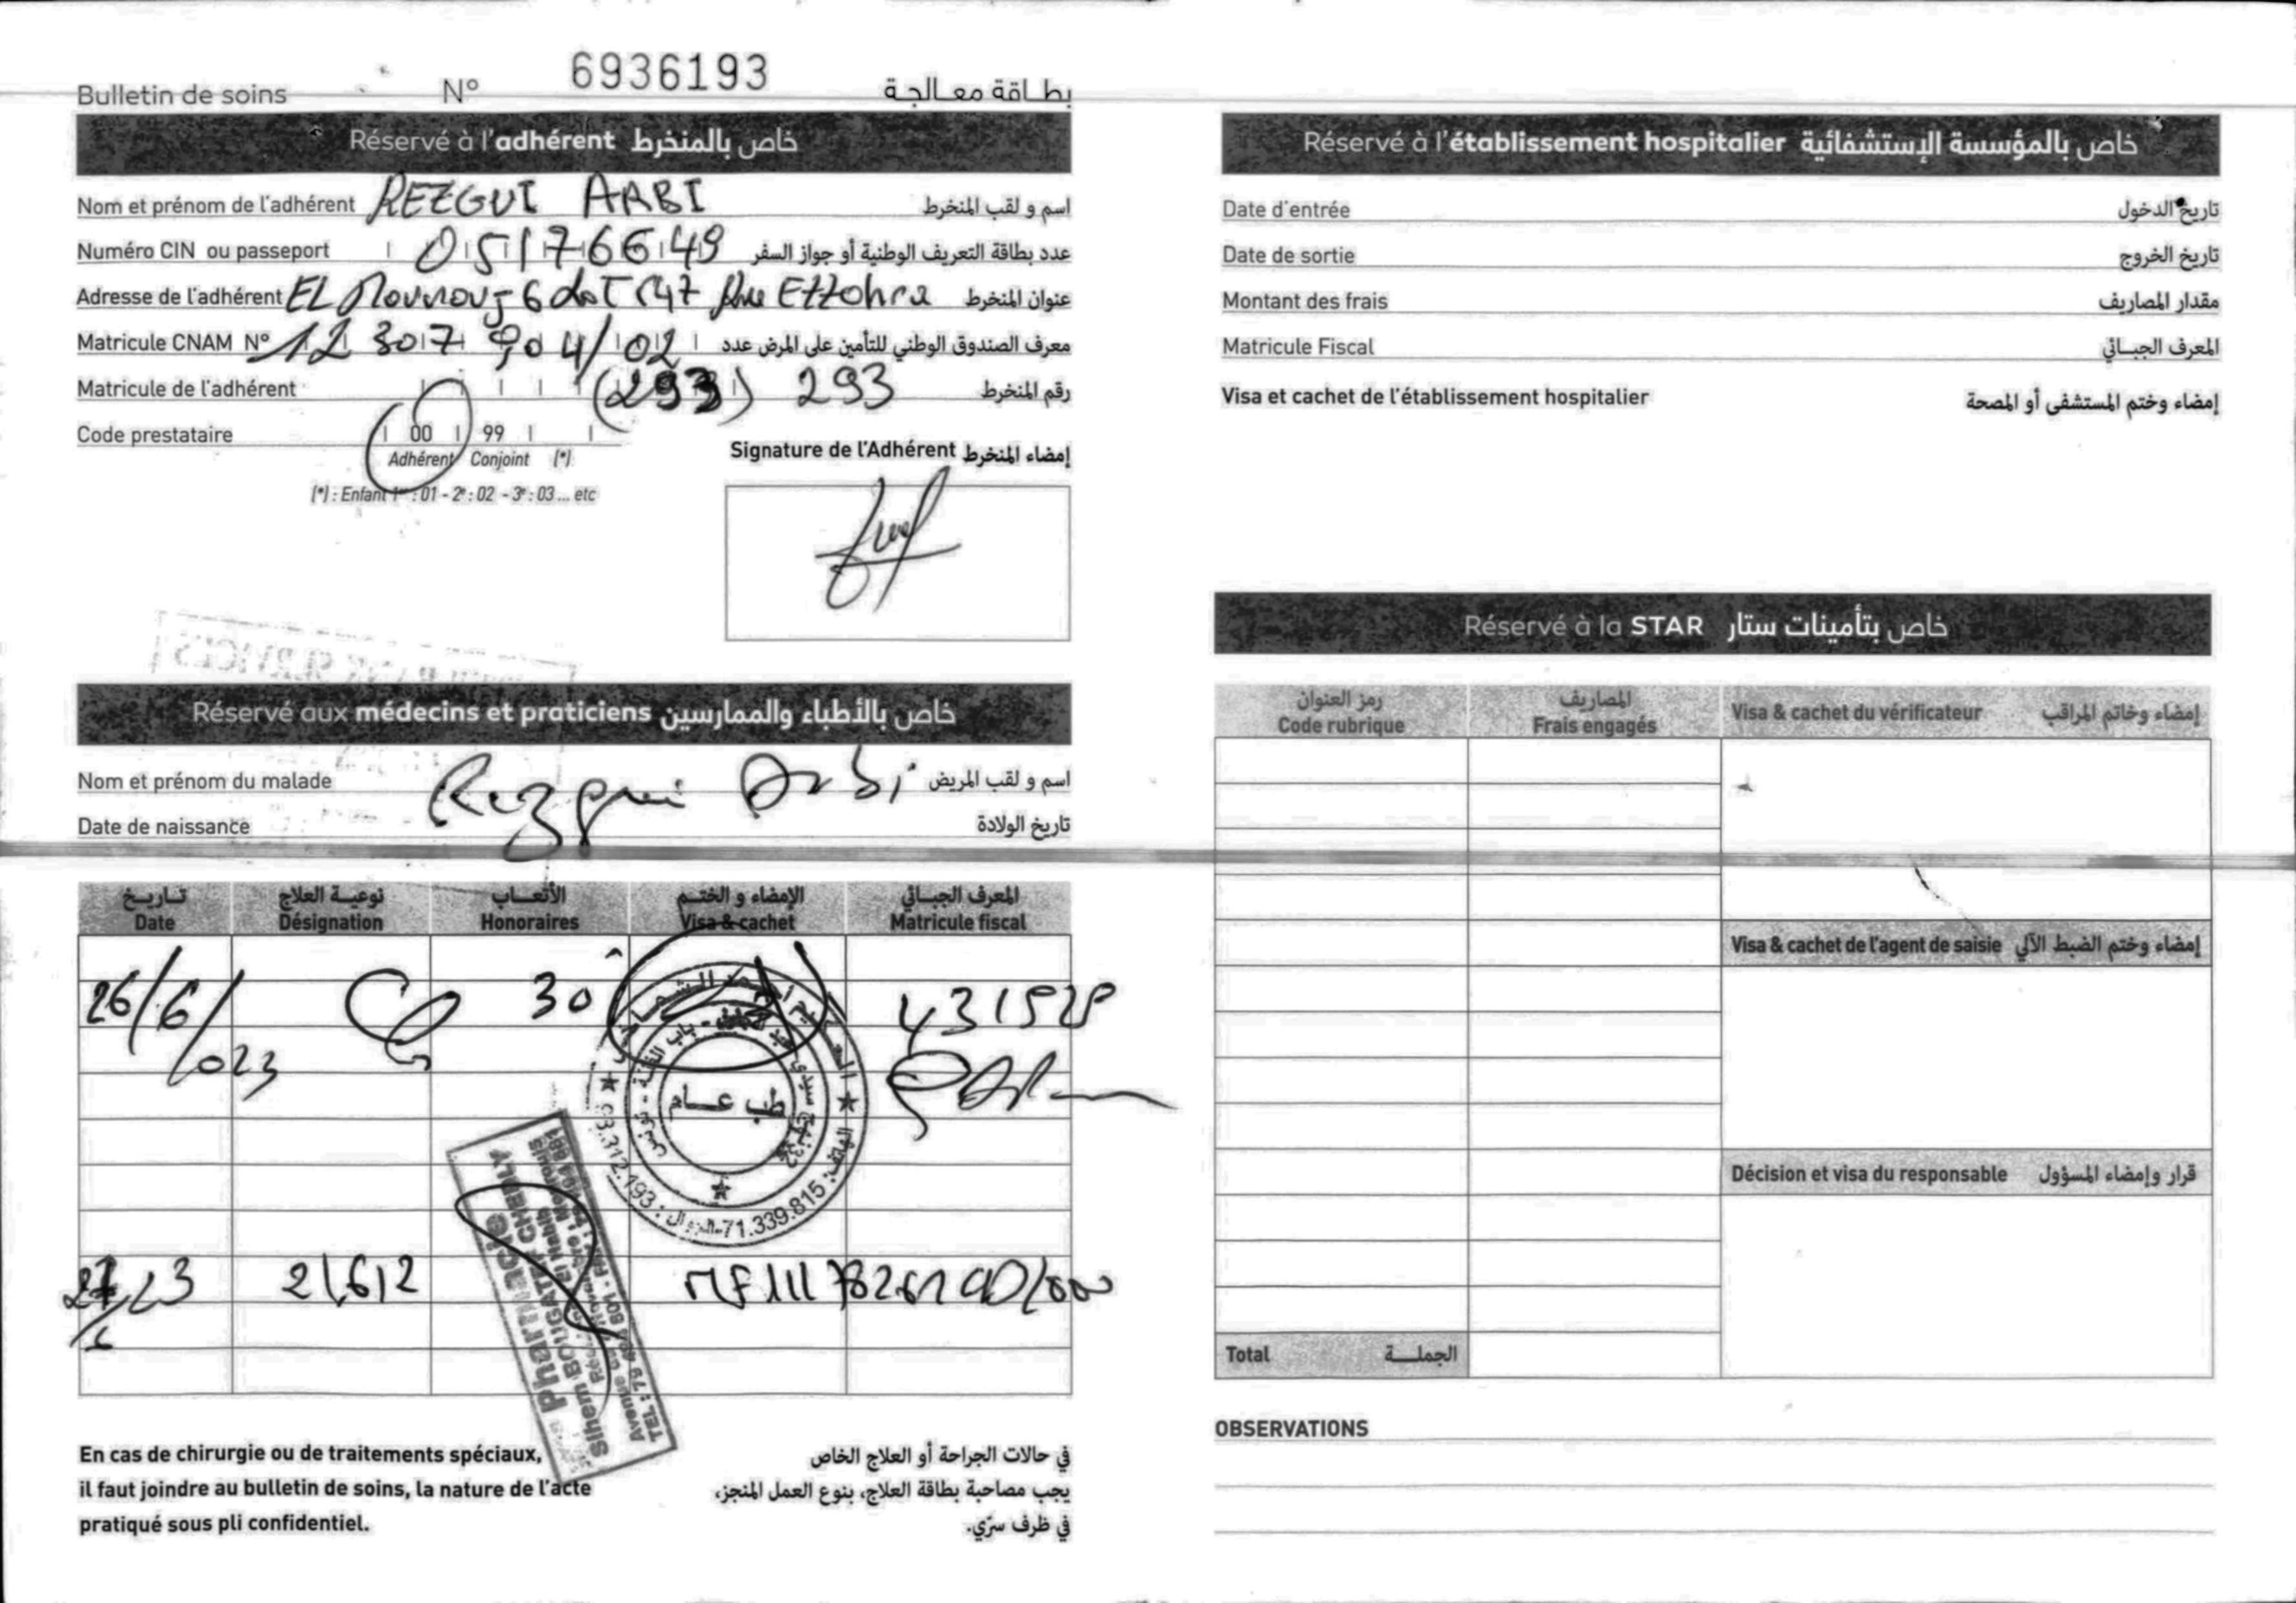 Bulletin de soins N° 6936193 بطاقة معالجة
Réservé à l'adhérent خاص بالمنخرط
Nom et prénom de l'adhérent REZGUI ARBI اسم و لقب المنخرط
Numéro CIN ou passeport 05176649 عدد بطاقة التعريف الوطنية أو جواز السفر
Adresse de l'adhérent EL Mourouj 6 Lot 147 Rue Ettohra عنوان المنخرط
Matricule CNAM N° 12307904/02 معرف الصندوق الوطني للتأمين على المرض عدد
Matricule de l'adhérent (293) 293 رقم المنخرط
Code prestataire 00 99
Adhérent Conjoint (*)
(*) : Enfant 1er : 01 - 2e : 02 - 3e : 03 ... etc
Signature de l'Adhérent إمضاء المنخرط
Réservé aux médecins et praticiens خاص بالأطباء والممارسين
Nom et prénom du malade Rezgui Arbi اسم و لقب المريض
Date de naissance تاريخ الولادة
تاريخ نوعية العلاج الأتعاب الإمضاء و الختم المعرف الجبائي
Date Désignation Honoraires Visa & cachet Matricule fiscal
26/6/023 C 30 431528
طب عام
الهاتف: 71.339.815
27/23 21,612
Pharmacie
Sihem BOUGATEF CHEDLY
En cas de chirurgie ou de traitements spéciaux,
il faut joindre au bulletin de soins, la nature de l'acte
pratiqué sous pli confidentiel.
في حالات الجراحة أو العلاج الخاص
يجب مصاحبة بطاقة العلاج، بنوع العمل المنجز،
في ظرف سرّي.
Réservé à l'établissement hospitalier خاص بالمؤسسة الإستشفائية
Date d'entrée تاريخ الدخول
Date de sortie تاريخ الخروج
Montant des frais مقدار المصاريف
Matricule Fiscal المعرف الجبائي
Visa et cachet de l'établissement hospitalier إمضاء وختم المستشفى أو المصحة
Réservé à la STAR خاص بتأمينات ستار
رمز العنوان المصاريف
Code rubrique Frais engagés Visa & cachet du vérificateur إمضاء وخاتم المراقب
Visa & cachet de l'agent de saisie إمضاء وختم الضبط الآلي
Décision et visa du responsable قرار وإمضاء المسؤول
Total الجملة
OBSERVATIONS